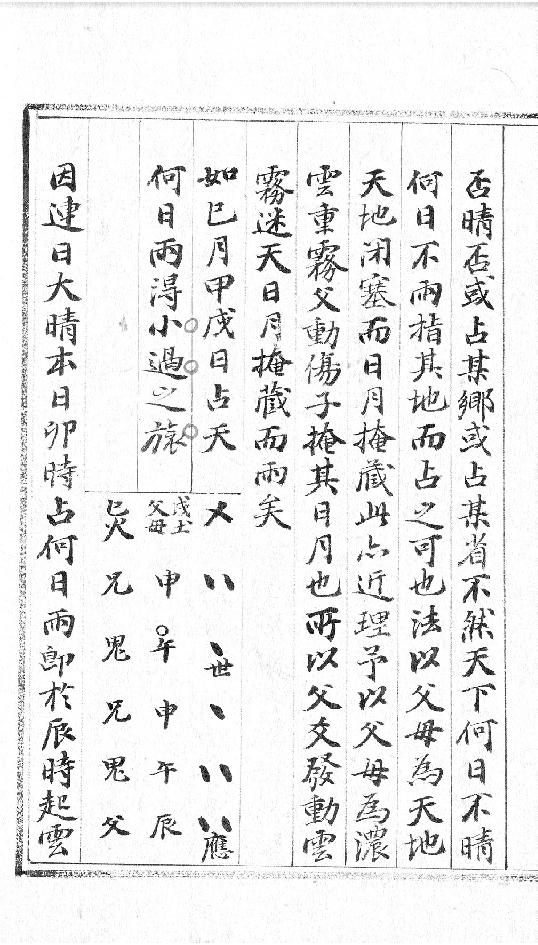 否晴否或占某鄉或占某省不然天下何日不晴
何日不雨指其地而占之可也法以父母為天地
天地闭塞而日月掩藏此亦近理予以父母為濃
雲重霧父動傷子掩其日月也所以父爻發動雲
霧迷天日月掩藏而雨矣
如巳月甲戌日占天
何日雨得小過之旅
乂 〵〵 〵世 〵 〵〵 〵〵應
戌土父母 申 午 申 午 辰
巳火 兄 鬼 兄 鬼 父
因連日大晴本日卯時占何日雨即於辰時起雲